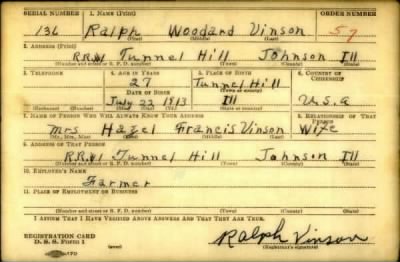 SERIAL NUMBER 1. NAME (Print) ORDER NUMBER
136 Ralph Woodard Vinson 57
(First) (Middle) (Last)
2. ADDRESS (Print)
R.R.#1 Tunnel Hill Johnson Ill
(Number and street or R. F. D. number) (Town) (County) (State)
3. TELEPHONE 4. AGE IN YEARS 5. PLACE OF BIRTH 6. COUNTRY OF CITIZENSHIP
27 Tunnel Hill
DATE OF BIRTH (Town or county)
July 22 1913 Ill U.S.A
(Exchange) (Number) (Mo.) (Day) (Yr.) (State or country)
7. NAME OF PERSON WHO WILL ALWAYS KNOW YOUR ADDRESS 8. RELATIONSHIP OF THAT PERSON
Mrs Hazel Francis Vinson Wife
(Mr., Mrs., Miss) (First) (Middle) (Last)
9. ADDRESS OF THAT PERSON
R.R.#1 Tunnel Hill Johnson Ill
(Number and street or R. F. D. number) (Town) (County) (State)
10. EMPLOYER'S NAME
Farmer
11. PLACE OF EMPLOYMENT OR BUSINESS
(Number and street or R. F. D. number) (Town) (County) (State)
I AFFIRM THAT I HAVE VERIFIED ABOVE ANSWERS AND THAT THEY ARE TRUE.
REGISTRATION CARD
D. S. S. Form 1 (over) Ralph Vinson
(Registrant's signature)